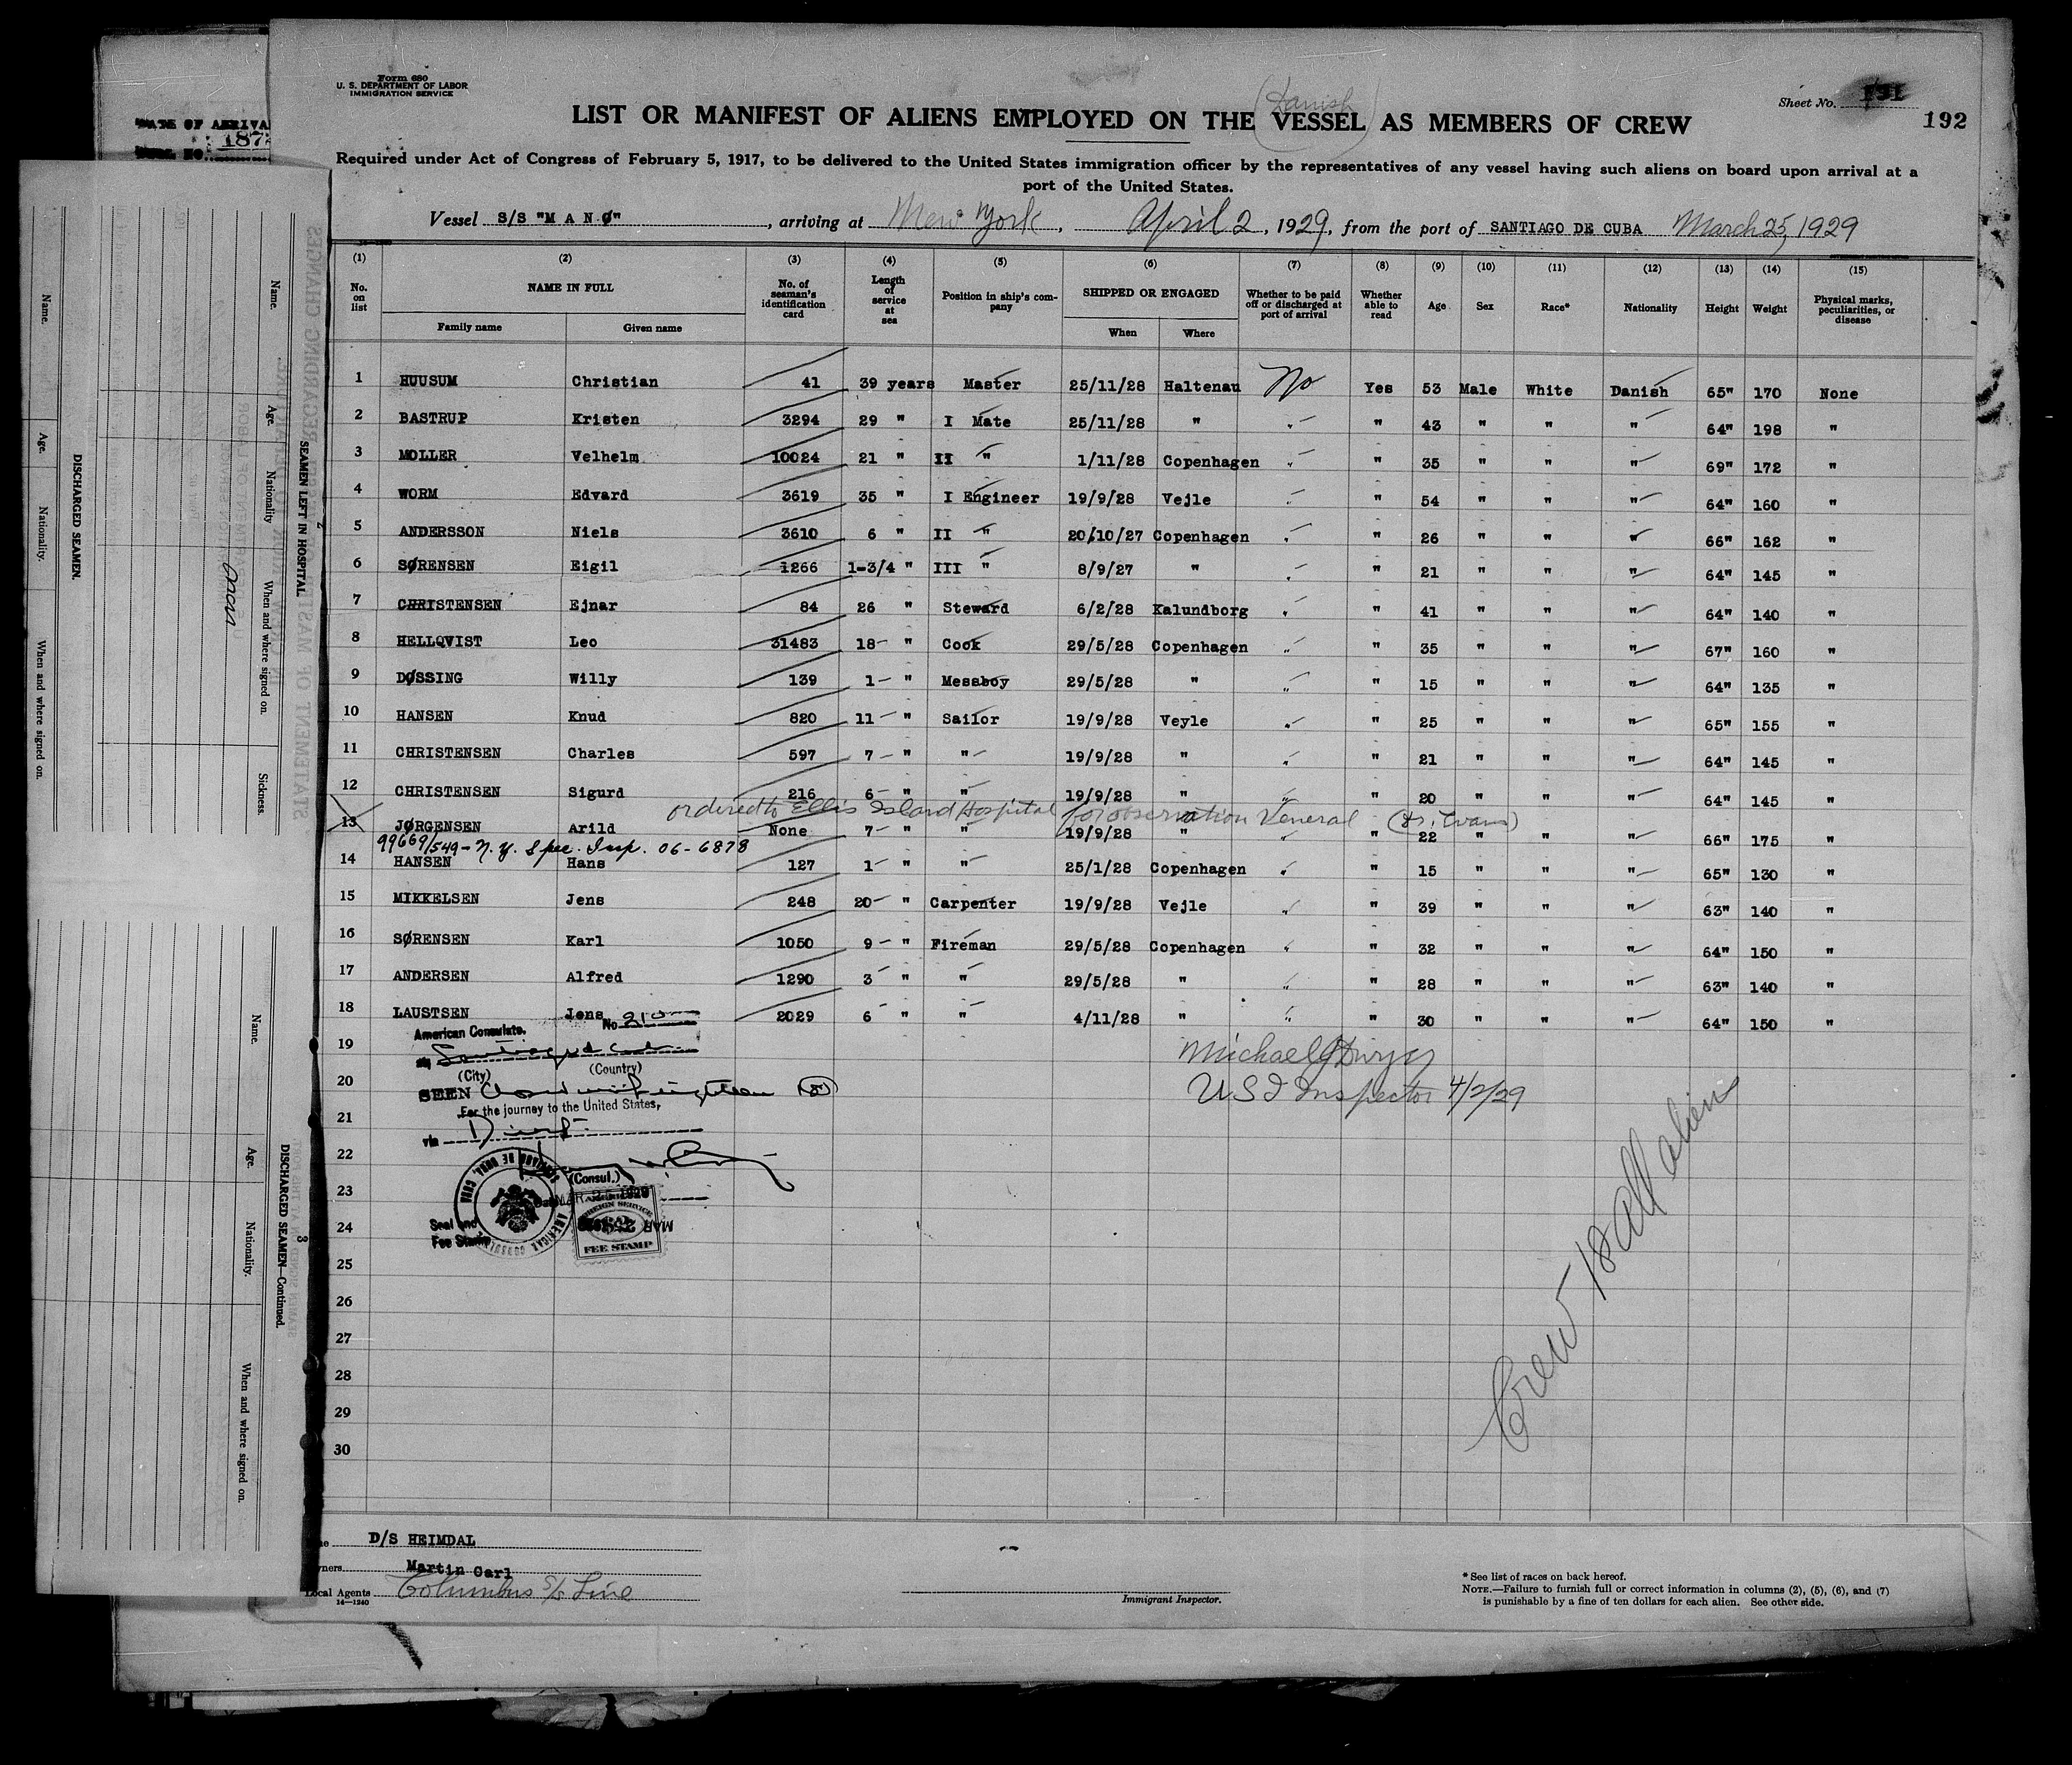 Form 680
U. S. DEPARTMENT OF LABOR
IMMIGRATION SERVICE
(Danish)
Sheet No. 191
192
LIST OR MANIFEST OF ALIENS EMPLOYED ON THE VESSEL AS MEMBERS OF CREW
Required under Act of Congress of February 5, 1917, to be delivered to the United States immigration officer by the representatives of any vessel having such aliens on board upon arrival at a
port of the United States.
Vessel S/S "M A N Ø", arriving at New York, April 2, 1929, from the port of SANTIAGO DE CUBA March 25, 1929
(1) (2) (3) (4) (5) (6) (7) (8) (9) (10) (11) (12) (13) (14) (15)
No. on list NAME IN FULL Family name Given name No. of seaman's identification card Length of service at sea Position in ship's company SHIPPED OR ENGAGED When Where Whether to be paid off or discharged at port of arrival Whether able to read Age Sex Race* Nationality Height Weight Physical marks, peculiarities, or disease
1 HUUSUM Christian 41 39 years Master 25/11/28 Haltenau No Yes 53 Male White Danish 65" 170 None
2 BASTRUP Kristen 3294 29 " I Mate 25/11/28 " " " 43 " " " 64" 198 "
3 MOLLER Velhelm 10024 21 " II " 1/11/28 Copenhagen " " 35 " " " 69" 172 "
4 WORM Edvard 3619 35 " I Engineer 19/9/28 Vejle " " 54 " " " 64" 160 "
5 ANDERSSON Niels 3610 6 " II " 20/10/27 Copenhagen " " 26 " " " 66" 162 "
6 SØRENSEN Eigil 1266 1-3/4 " III " 8/9/27 " " " 21 " " " 64" 145 "
7 CHRISTENSEN Ejnar 84 26 " Steward 6/2/28 Kalundborg " " 41 " " " 64" 140 "
8 HELLQVIST Leo 31483 18 " Cook 29/5/28 Copenhagen " " 35 " " " 67" 160 "
9 DØSSING Willy 139 1 " Messboy 29/5/28 " " " 15 " " " 64" 135 "
10 HANSEN Knud 820 11 " Sailor 19/9/28 Veyle " " 25 " " " 65" 155 "
11 CHRISTENSEN Charles 597 7 " " 19/9/28 " " " 21 " " " 64" 145 "
12 CHRISTENSEN Sigurd 216 6 " " 19/9/28 " " " 20 " " " 64" 145 "
ordered to Ellis Island Hospital for observation Veneral (Dr. Evans)
13 JØRGENSEN Arild None 7 " " 19/9/28 " " 22 " " " 66" 175 "
99669/549 - N.Y. Spec. Insp. 06-6878
14 HANSEN Hans 127 1 " " 25/1/28 Copenhagen " " 15 " " " 65" 130 "
15 MIKKELSEN Jens 248 20 " Carpenter 19/9/28 Vejle " " 39 " " " 63" 140 "
16 SØRENSEN Karl 1050 9 " Fireman 29/5/28 Copenhagen " " 32 " " " 64" 150 "
17 ANDERSEN Alfred 1290 3 " " 29/5/28 " " " 28 " " " 63" 140 "
18 LAUSTSEN Jens 2029 6 " " 4/11/28 " " " 30 " " " 64" 150 "
19
20
21
22
23
24
25
26
27
28
29
30
American Consulate. No. 210
(City) (Country)
SEEN
For the journey to the United States,
via Direct
(Consul.)
SANTIAGO DE CUBA, CUBA
AMERICAN CONSULATE
Seal and
Fee Stamp
FOREIGN SERVICE
FEE STAMP
Michael J Dwyer
U S I Inspector 4/2/29
Crew 18 all aliens
D/S HEIMDAL
Martin Carl
Local Agents Columbus S/S Line
14—1240
Immigrant Inspector.
* See list of races on back hereof.
NOTE.—Failure to furnish full or correct information in columns (2), (5), (6), and (7)
is punishable by a fine of ten dollars for each alien. See other side.
DISCHARGED SEAMEN.
Name. Age. Nationality. When and where signed on.
SEAMEN LEFT IN HOSPITAL
Name. Age. Nationality When and where signed on. Sickness.
DISCHARGED SEAMEN—Continued.
Name. Age. Nationality. When and where signed on.
3